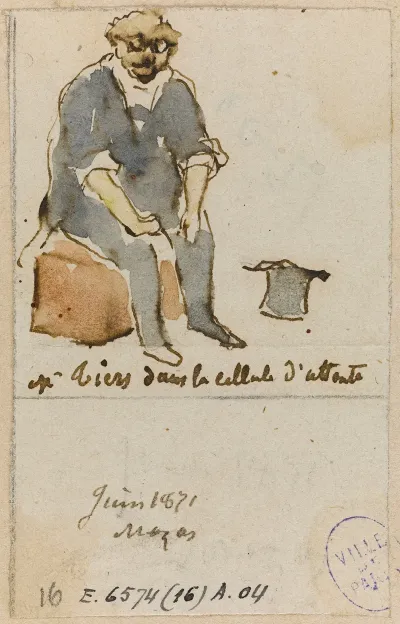 Mr Tiers dans la cellule d'attente
Juin 1871
Mazas
16 E. 6574 (16) A. 04
VILLE
DE
PA